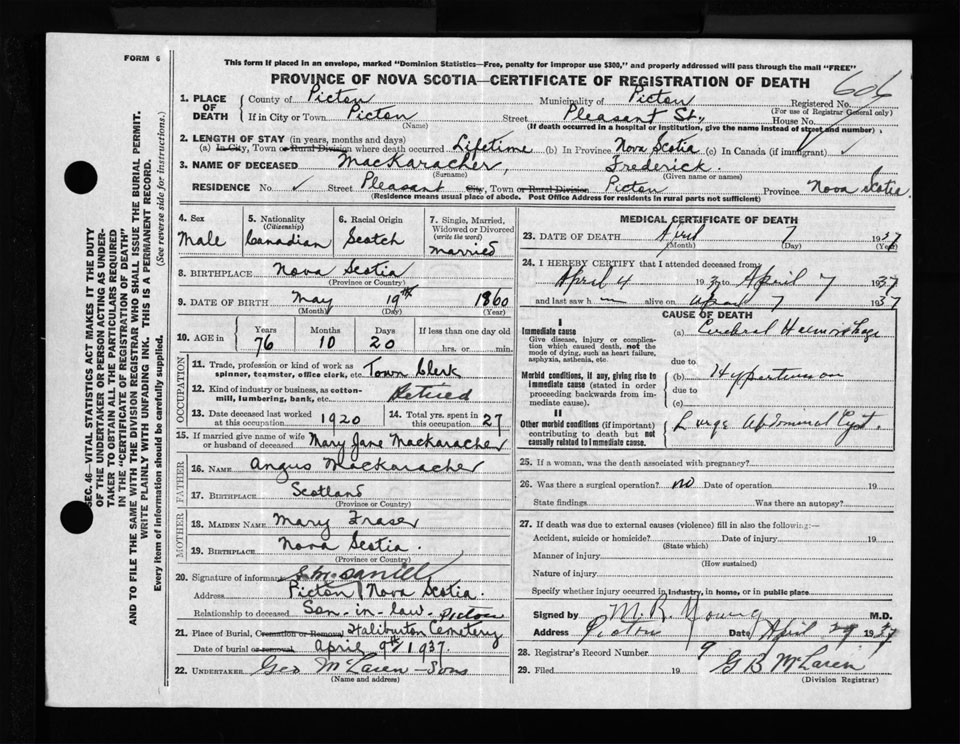 FORM 6
This form if placed in an envelope, marked "Dominion Statistics—Free, penalty for improper use $300," and properly addressed will pass through the mail "FREE"
PROVINCE OF NOVA SCOTIA—CERTIFICATE OF REGISTRATION OF DEATH
606
1. PLACE OF DEATH { County of Pictou Municipality of Pictou Registered No.
(For use of Registrar General only)
If in City or Town Pictou Street Pleasant St., House No.
(Name) (If death occurred in a hospital or institution, give the name instead of street and number)
2. LENGTH OF STAY (in years, months and days)
(a) In City, Town or Rural Division where death occurred Lifetime (b) In Province Nova Scotia (c) In Canada (if immigrant) ✓
3. NAME OF DECEASED MacKaracher, Frederick.
(Surname) (Given name or names)
RESIDENCE No. ✓ Street Pleasant City, Town or Rural Division Pictou Province Nova Scotia
(Residence means usual place of abode. Post Office Address for residents in rural parts not sufficient)
4. Sex Male
5. Nationality (Citizenship) Canadian
6. Racial Origin Scotch
7. Single, Married, Widowed or Divorced (write the word) Married
8. BIRTHPLACE Nova Scotia
(Province or Country)
9. DATE OF BIRTH May 19th 1860
(Month) (Day) (Year)
10. AGE IN Years 76 Months 10 Days 20 If less than one day old hrs. or min.
OCCUPATION
11. Trade, profession or kind of work as spinner, teamster, office clerk, etc. Town Clerk
12. Kind of industry or business, as cotton-mill, lumbering, bank, etc. Retired
13. Date deceased last worked at this occupation 1920
14. Total yrs. spent in this occupation 27
15. If married give name of wife or husband of deceased Mary Jane Mackaracher
FATHER
16. NAME Angus Mackaracher
17. BIRTHPLACE Scotland
(Province or Country)
MOTHER
18. MAIDEN NAME Mary Fraser
19. BIRTHPLACE Nova Scotia.
(Province or Country)
20. Signature of informant
Address Pictou Nova Scotia.
Relationship to deceased Son-in-law. Pictou
21. Place of Burial, Cremation or Removal Haliburton Cemetery
Date of burial or removal April 9th 1937.
22. UNDERTAKER Geo McLaren - Sons
(Name and address)
MEDICAL CERTIFICATE OF DEATH
23. DATE OF DEATH April 7 1937
(Month) (Day) (Year)
24. I HEREBY CERTIFY that I attended deceased from
April 4 193 to April 7 1937
and last saw h alive on April 7 1937
CAUSE OF DEATH
I
Immediate cause
Give disease, injury or complication which caused death, not the mode of dying, such as heart failure, asphyxia, asthenia, etc.
(a) Cerebral Haemorrhage
due to
Morbid conditions, if any, giving rise to immediate cause (stated in order proceeding backwards from immediate cause).
(b) Hypertension
due to
(c)
II
Other morbid conditions (if important) contributing to death but not causally related to immediate cause.
Large Abdominal Cyst.
25. If a woman, was the death associated with pregnancy?
26. Was there a surgical operation? no Date of operation 19
State findings Was there an autopsy?
27. If death was due to external causes (violence) fill in also the following:—
Accident, suicide or homicide? Date of injury 19
(State which)
Manner of injury
(How sustained)
Nature of injury
Specify whether injury occurred in industry, in home, or in public place
Signed by M. R. Young M.D.
Address Pictou Date April 29 1937
28. Registrar's Record Number 9
29. Filed 19 G B McLaren
(Division Registrar)
SEC. 46—VITAL STATISTICS ACT MAKES IT THE DUTY
OF THE UNDERTAKER OR PERSON ACTING AS UNDER-
TAKER TO OBTAIN ALL THE PARTICULARS REQUIRED
IN THE "CERTIFICATE OF REGISTRATION OF DEATH"
AND TO FILE THE SAME WITH THE DIVISION REGISTRAR WHO SHALL ISSUE THE BURIAL PERMIT.
WRITE PLAINLY WITH UNFADING INK. THIS IS A PERMANENT RECORD.
Every item of information should be carefully supplied. (See reverse side for instructions.)